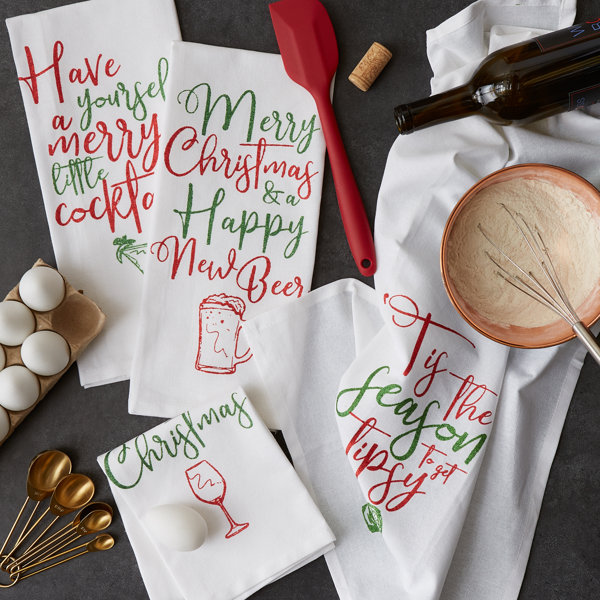 Have
yoursel
a
merry
little
cockta
Merry
Christmas
& a
Happy
New Beer
'Tis
the
season
to get
tipsy
Christmas